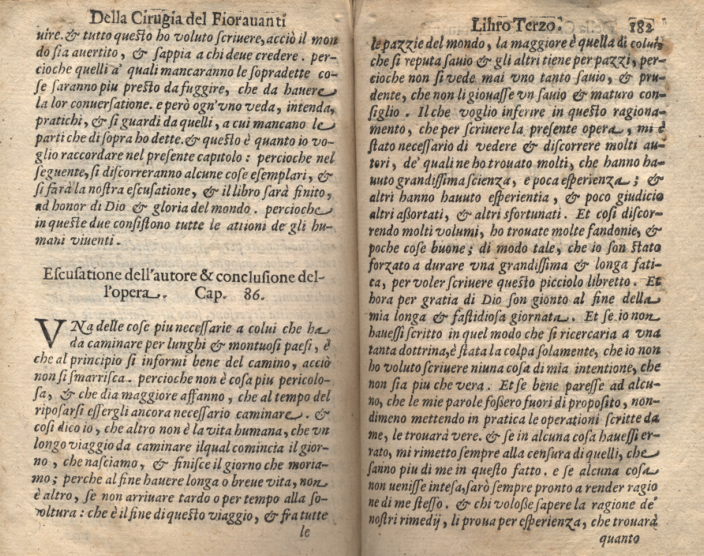 Della Cirugia del Fiorauanti
uire. & tutto questo ho voluto scriuere, acciò il mon
do sia auertito, & sappia a chi deue credere. per-
cioche quelli a' quali mancaranno le sopradette co-
se saranno piu presto da fuggire, che da hauere
la lor conuersatione. e però ogn'vno veda, intenda,
pratichi, & si guardi da quelli, a cui mancano le
parti che di sopra ho dette. & questo è quanto io vo-
glio raccordare nel presente capitolo: percioche nel
seguente, si discorreranno alcune cose esemplari, &
si farà la nostra escusatione, & il libro sarà finito,
ad honor di Dio & gloria del mondo. percioche
in queste due consistono tutte le attioni de gli hu-
mani viuenti.
Escusatione dell'autore & conclusione del-
l'opera. Cap. 86.
VNa delle cose piu necessarie a colui che ha
da caminare per lunghi & montuosi paesi, è
che al principio si informi bene del camino, acciò
non si smarrisca. percioche non è cosa piu pericolo-
sa, & che dia maggiore affanno, che al tempo del
riposarsi essergli ancora necessario caminare. &
cosi dico io, che altro non è la vita humana, che vn
longo viaggio da caminare ilqual comincia il gior-
no, che nasciamo, & finisce il giorno che moria-
mo; perche al fine hauere longa o breue vita, non
è altro, se non arriuare tardo o per tempo alla se-
poltura: che è il fine di questo viaggio, & fra tutte
le
Libro Terzo. 182
le pazzie del mondo, la maggiore è quella di colui,
che si reputa sauio & gli altri tiene per pazzi, per-
cioche non si vede mai vno tanto sauio, & pru-
dente, che non li giouasse vn sauio & maturo con-
siglio. Il che voglio inferire in questo ragiona-
mento, che per scriuere la presente opera, mi è
stato necessario di vedere & discorrere molti au-
tori, de' quali ne ho trouato molti, che hanno ha-
uuto grandissima scienza, e poca esperienza; &
altri hanno hauuto esperientia, & poco giudicio
altri assortati, & altri sfortunati. Et cosi discor-
rendo molti volumi, ho trouate molte fandonie, &
poche cose buone; di modo tale, che io son stato
forzato a durare vna grandissima & longa fati-
ca, per voler scriuere questo picciolo libretto. Et
hora per gratia di Dio son gionto al fine della
mia longa & fastidiosa giornata. Et se io non
hauessi scritto in quel modo che si ricercaria a vna
tanta dottrina, è stata la colpa solamente, che io non
ho voluto scriuere niuna cosa di mia intentione, che
non sia piu che vera. Et se bene paresse ad alcu-
no, che le mie parole fossero fuori di proposito, non-
dimeno mettendo in pratica le operationi scritte da
me, le trouarà vere. & se in alcuna cosa hauessi er-
rato, mi rimetto sempre alla censura di quelli, che
sanno piu di me in questo fatto. e se alcuna cosa
non uenisse intesa, sarò sempre pronto a render ragio
ne di me stesso. & chi volosse sapere la ragione de'
nostri rimedij, li proua per esperienza, che trouarà
quanto